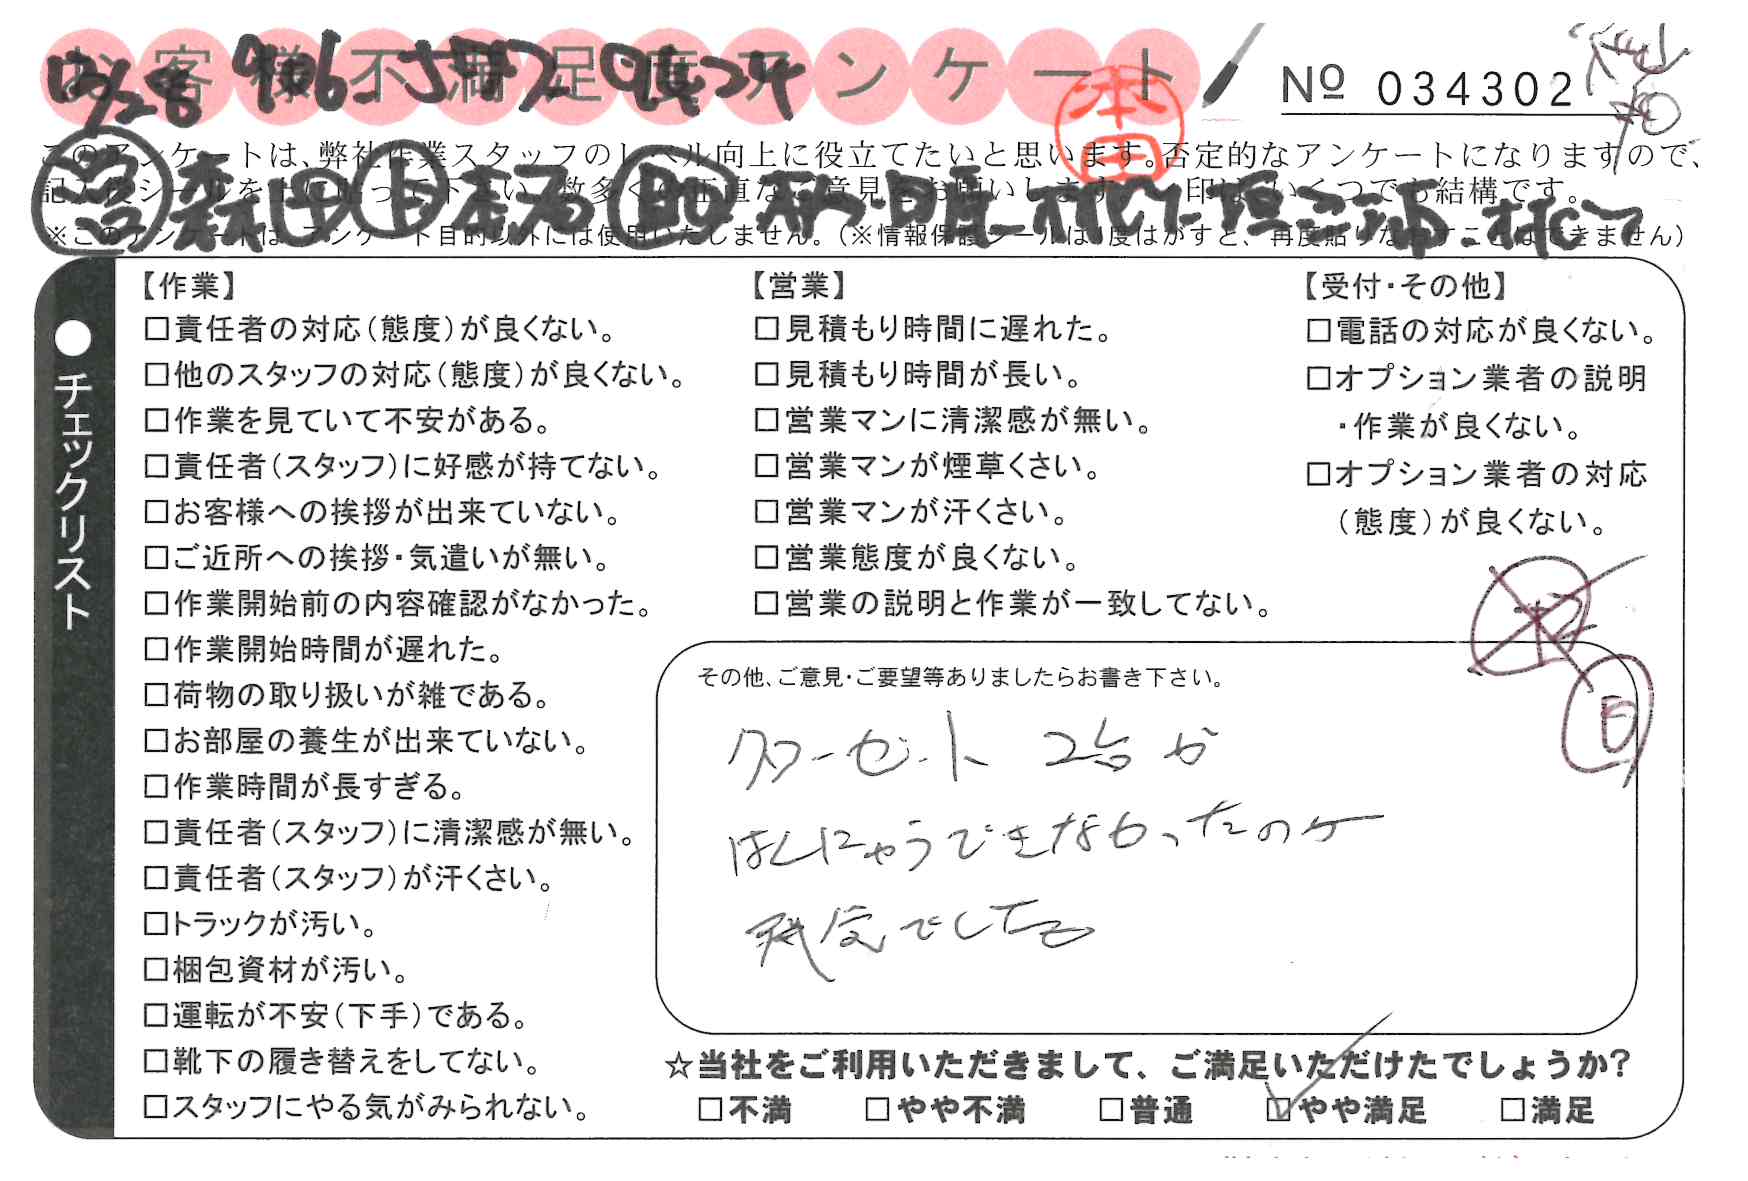 お客様不満足度アンケート
No 034302
本田
12/28
このアンケートは、弊社作業スタッフのレベル向上に役立てたいと思います。否定的なアンケートになりますので、
記入後シールを上に貼って下さい。数多くの正直なご意見をお願いします。
印は、いくつでも結構です。
※このアンケートは、アンケート目的以外には使用いたしません。（※情報保護シールは1度はがすと、再度貼りなおすことはできません）
●チェックリスト
【作業】
□責任者の対応（態度）が良くない。
□他のスタッフの対応（態度）が良くない。
□作業を見ていて不安がある。
□責任者（スタッフ）に好感が持てない。
□お客様への挨拶が出来ていない。
□ご近所への挨拶・気遣いが無い。
□作業開始前の内容確認がなかった。
□作業開始時間が遅れた。
□荷物の取り扱いが雑である。
□お部屋の養生が出来ていない。
□作業時間が長すぎる。
□責任者（スタッフ）に清潔感が無い。
□責任者（スタッフ）が汗くさい。
□トラックが汚い。
□梱包資材が汚い。
□運転が不安（下手）である。
□靴下の履き替えをしてない。
□スタッフにやる気がみられない。
【営業】
□見積もり時間に遅れた。
□見積もり時間が長い。
□営業マンに清潔感が無い。
□営業マンが煙草くさい。
□営業マンが汗くさい。
□営業態度が良くない。
□営業の説明と作業が一致してない。
【受付・その他】
□電話の対応が良くない。
□オプション業者の説明
・作業が良くない。
□オプション業者の対応
（態度）が良くない。
その他、ご意見・ご要望等ありましたらお書き下さい。
クローゼット 2台が
はんにゅうできなかったのが
残念でした
☆当社をご利用いただきまして、ご満足いただけたでしょうか?
□不満 □やや不満 □普通 ☑やや満足 □満足